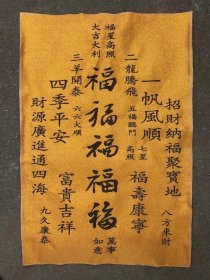 招財納福聚寶地
八方來財
一帆風順
七星
高照
福壽康寧
二龍騰飛
五福臨門
福星高照
大吉大利
福福福福福
萬事
如意
三羊開泰
六六大順
富貴吉祥
四季平安
財源廣進通四海
九久康泰